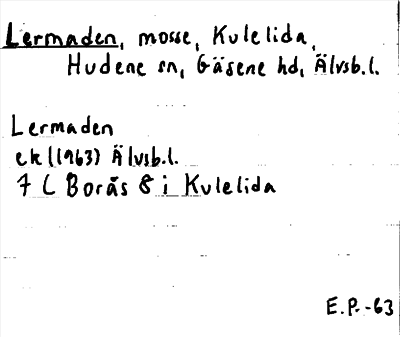 Lermaden, mosse, Kulelida,
Hudene sn, Gäsene hd, Älvsb.l.
Lermaden
ek (1963) Älvsb.l.
7 C Borås 8 i Kulelida
E.P.-63